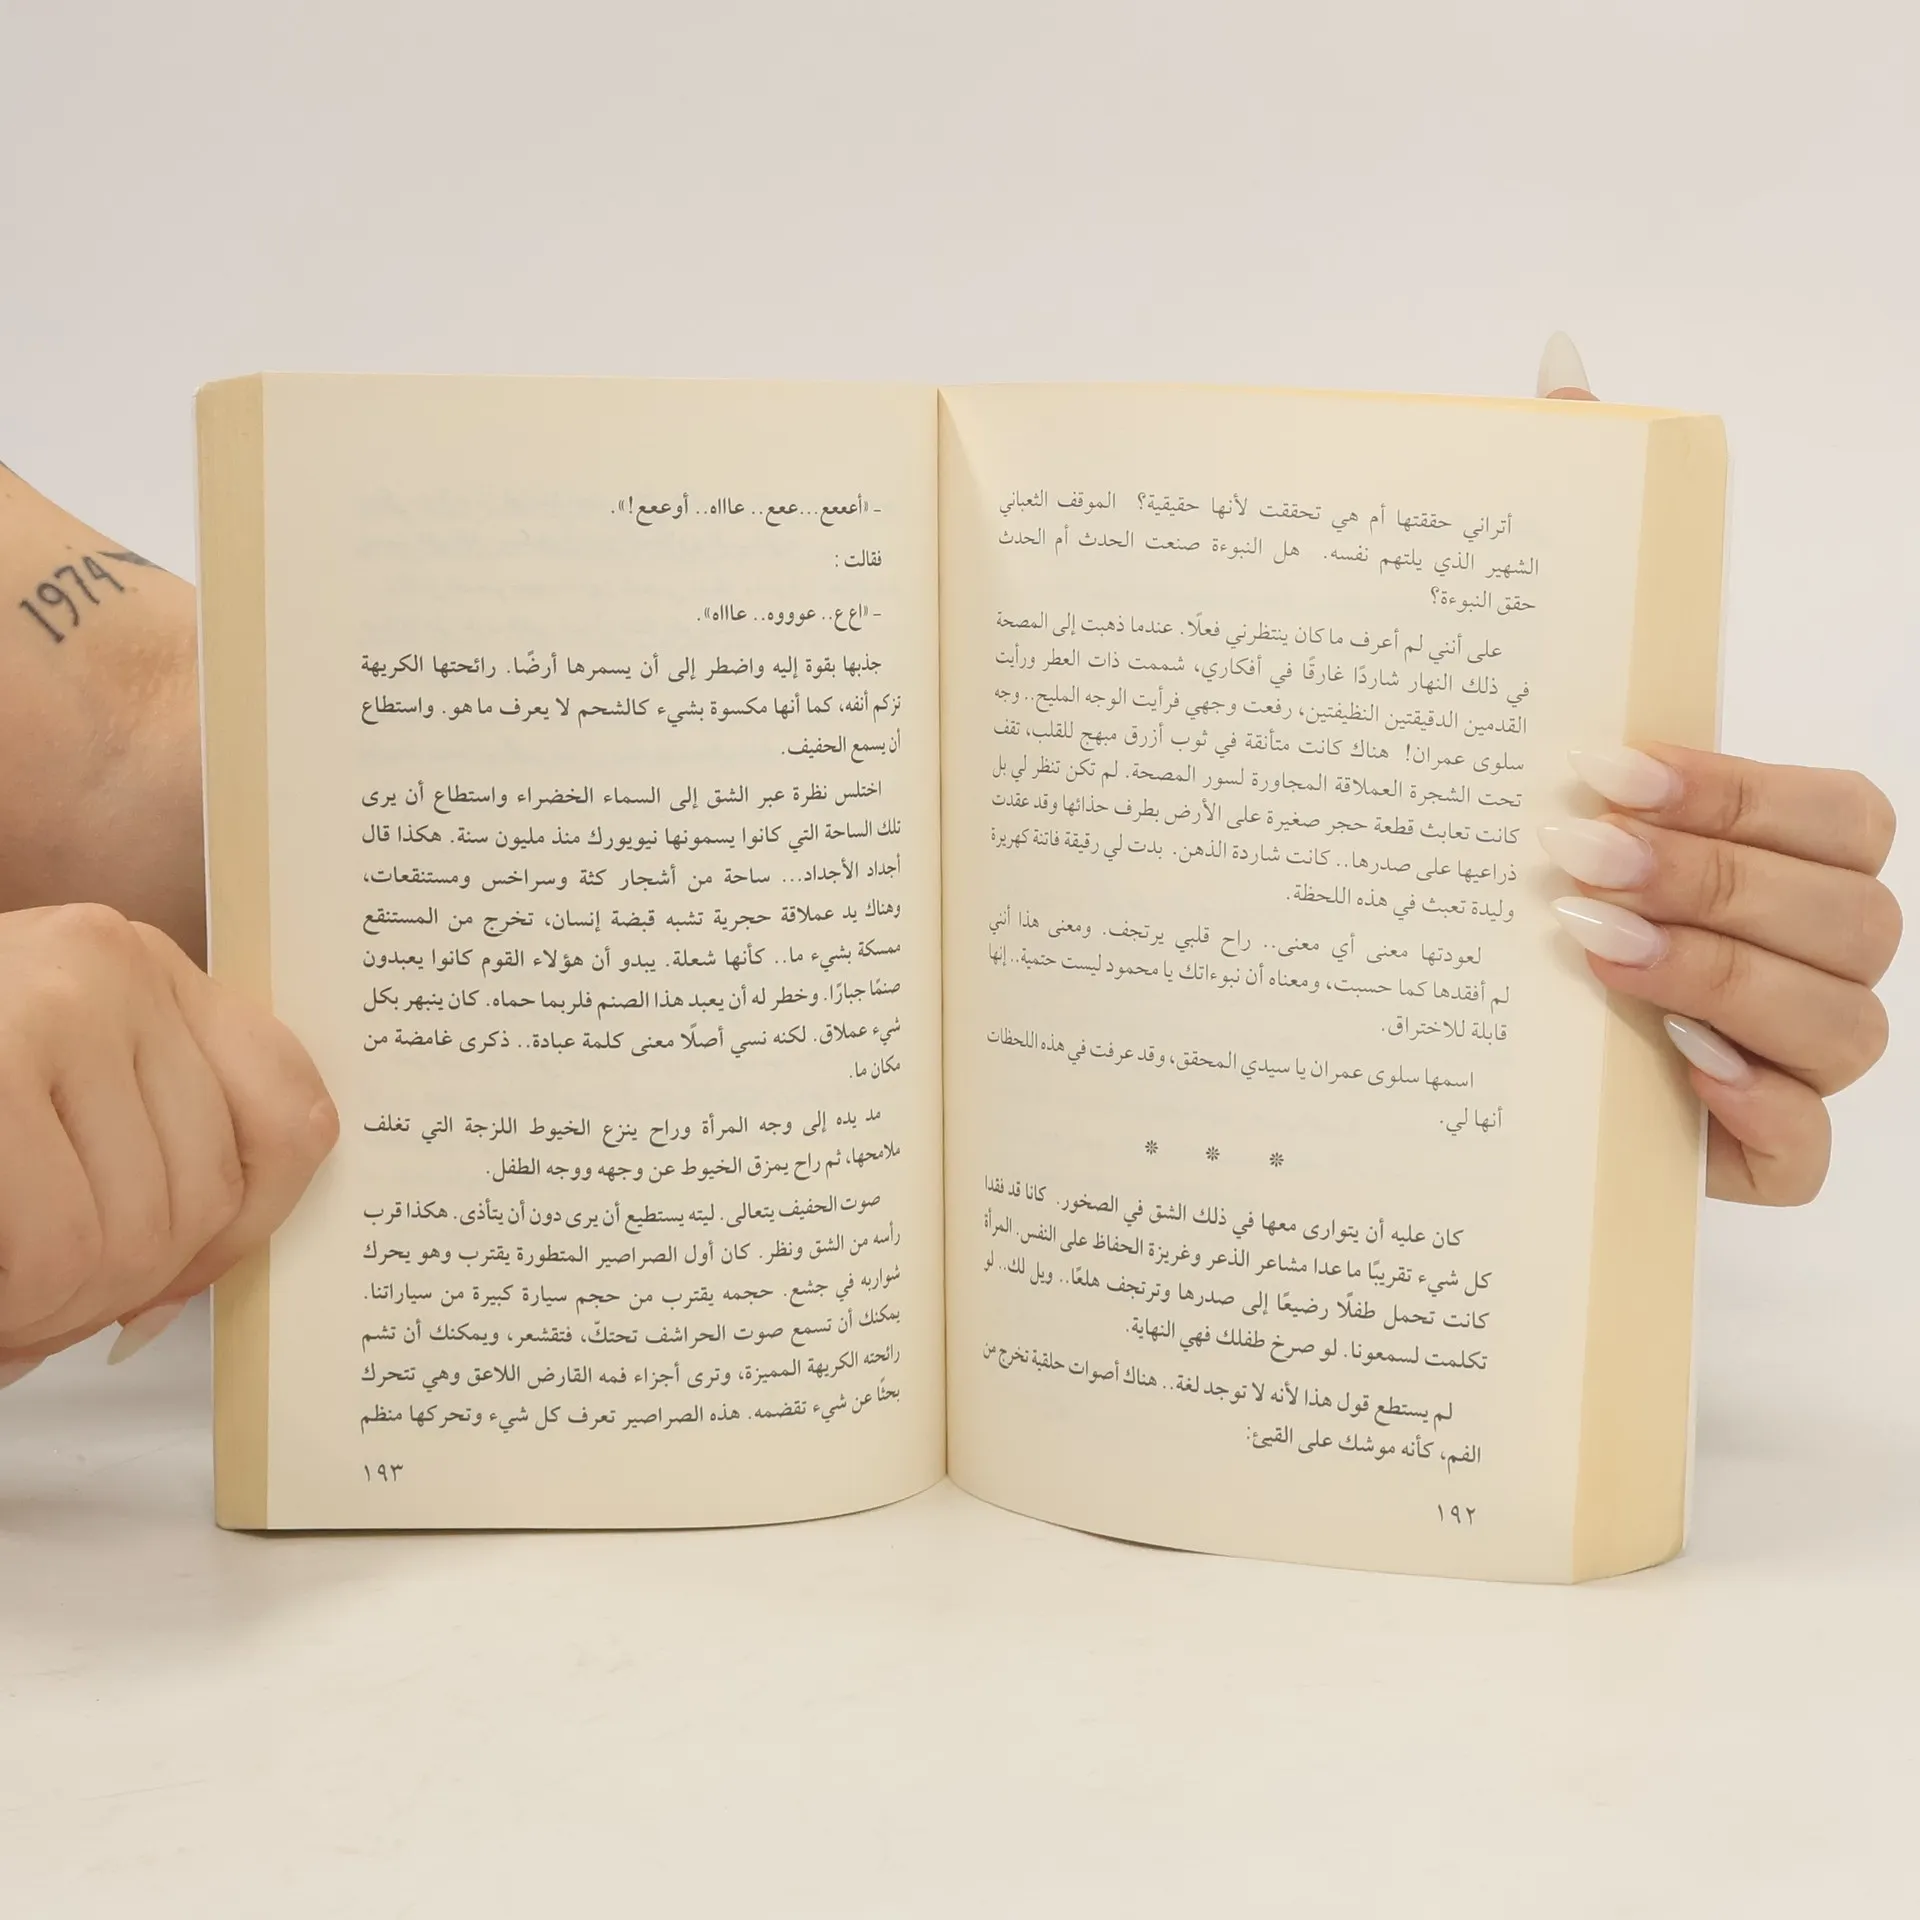 أتراني حققتها أم هي تحققت لأنها حقيقية؟ الموقف الثعباني
الشهير الذي يلتهم نفسه. هل النبوءة صنعت الحدث أم الحدث
حقق النبوءة؟
على أنني لم أعرف ما كان ينتظرني فعلًا. عندما ذهبت إلى المصحة
في ذلك النهار شاردًا غارقًا في أفكاري، شممت ذات العطر ورأيت
القدمين الدقيقتين النظيفتين، رفعت وجهي فرأيت الوجه المليح.. وجه
سلوى عمران! هناك كانت متأنقة في ثوب أزرق مبهج للقلب، تقف
تحت الشجرة العملاقة المجاورة لسور المصحة. لم تكن تنظر لي بل
كانت تعابث قطعة حجر صغيرة على الأرض بطرف حذائها وقد عقدت
ذراعيها على صدرها.. كانت شاردة الذهن. بدت لي رقيقة فاتنة كهريرة
وليدة تعبث في هذه اللحظة.
لعودتها معنى أي معنى.. راح قلبي يرتجف. ومعنى هذا أنني
لم أفقدها كما حسبت، ومعناه أن نبوءاتك يا محمود ليست حتمية.. إنها
قابلة للاختراق.
اسمها سلوى عمران يا سيدي المحقق، وقد عرفت في هذه اللحظات
أنها لي.
* * *
كان عليه أن يتوارى معها في ذلك الشق في الصخور. كانا قد فقدا
كل شيء تقريبًا ما عدا مشاعر الذعر وغريزة الحفاظ على النفس. المرأة
كانت تحمل طفلًا رضيعًا إلى صدرها وترتجف هلعًا.. ويل لك.. لو
تكلمت لسمعونا. لو صرخ طفلك فهي النهاية.
لم يستطع قول هذا لأنه لا توجد لغة.. هناك أصوات حلقية تخرج من
الفم، كأنه موشك على القيئ:
١٩٢
- «أعععع...ععع.. عاااه.. أوععع!».
فقالت :
- «اع ع.. عوووه.. عاااه».
جذبها بقوة إليه واضطر إلى أن يسمرها أرضًا. رائحتها الكريهة
تزكم أنفه، كما أنها مكسوة بشيء كالشحم لا يعرف ما هو. واستطاع
أن يسمع الحفيف.
اختلس نظرة عبر الشق إلى السماء الخضراء واستطاع أن يرى
تلك الساحة التي كانوا يسمونها نيويورك منذ مليون سنة. هكذا قال
أجداد الأجداد... ساحة من أشجار كثة وسراخس ومستنقعات،
وهناك يد عملاقة حجرية تشبه قبضة إنسان، تخرج من المستنقع
ممسكة بشيء ما.. كأنها شعلة. يبدو أن هؤلاء القوم كانوا يعبدون
صنمًا جبارًا. وخطر له أن يعبد هذا الصنم فلربما حماه. كان ينبهر بكل
شيء عملاق. لكنه نسي أصلًا معنى كلمة عبادة.. ذكرى غامضة من
مكان ما.
مد يده إلى وجه المرأة وراح ينزع الخيوط اللزجة التي تغلف
ملامحها، ثم راح يمزق الخيوط عن وجهه ووجه الطفل.
صوت الحفيف يتعالى. ليته يستطيع أن يرى دون أن يتأذى. هكذا قرب
رأسه من الشق ونظر. كان أول الصراصير المتطورة يقترب وهو يحرك
شواربه في جشع. حجمه يقترب من حجم سيارة كبيرة من سياراتنا.
يمكنك أن تسمع صوت الحراشف تحتكّ، فتقشعر، ويمكنك أن تشم
رائحته الكريهة المميزة، وترى أجزاء فمه القارض اللاعق وهي تتحرك
بحثًا عن شيء تقضمه. هذه الصراصير تعرف كل شيء وتحركها منظم
١٩٣
1974